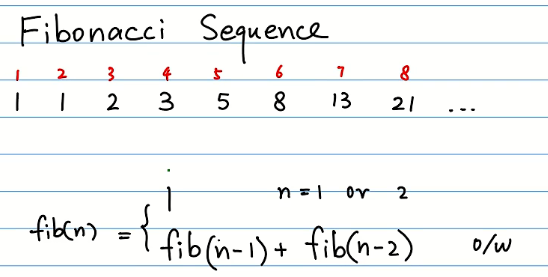 Fibonacci Sequence
1 2 3 4 5 6 7 8
1 1 2 3 5 8 13 21 ...
1 n=1 or 2
fib(n) = {
fib(n-1) + fib(n-2) o/w